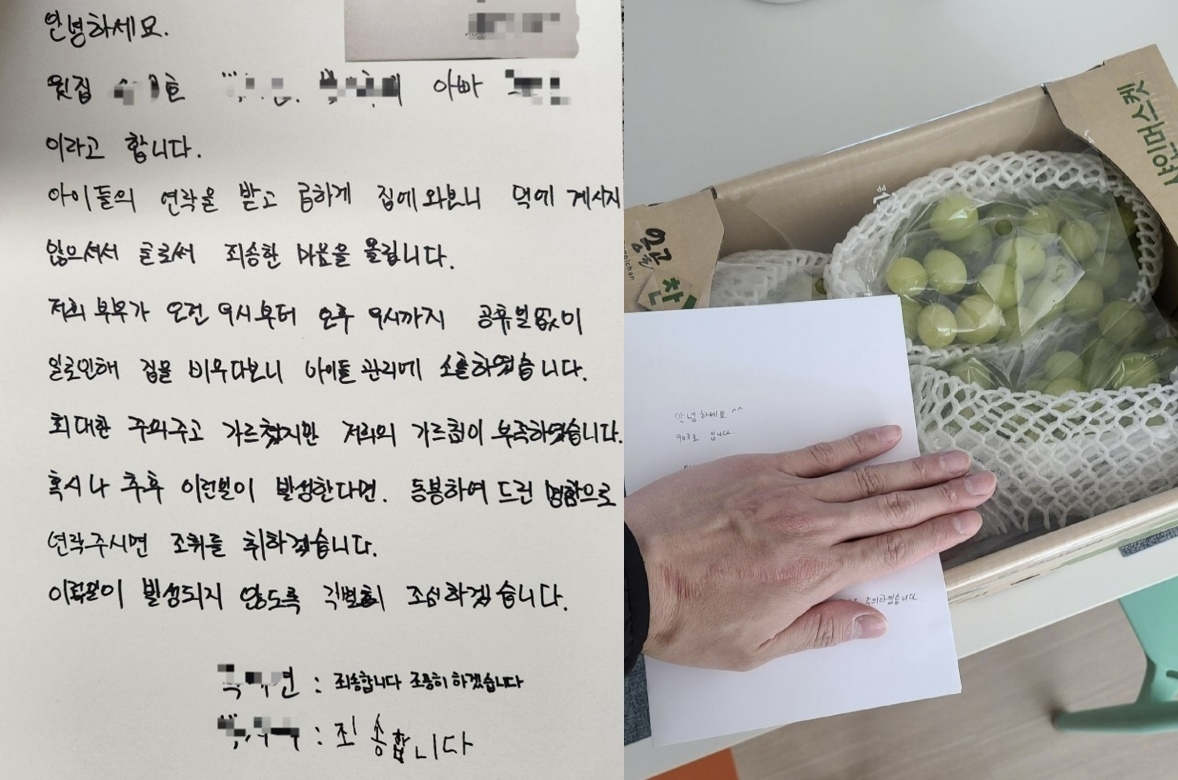 안녕하세요.
윗집 호 아빠
이라고 합니다.
아이들의 연락을 받고 급하게 집에와보니 댁에 계시지
않으셔서 글로써 죄송한 마음을 올립니다.
저희 부부가 오전 9시부터 오후 9시까지 공휴일없이
일로인해 집을 비우다보니 아이들 관리에 소홀하였습니다.
최대한 주의주고 가르쳤지만 저희의 가르침이 부족하였습니다.
혹시나 추후 이런일이 발생한다면. 동봉하여 드린 명함으로
연락주시면 조취를 취하겠습니다.
이런일이 발생되지 않도록 각별히 조심하겠습니다.
: 죄송합니다 조용히 하겠습니다
: 죄송합니다
샤인머스켓
안녕하세요^^
903호 입니다.
주의하겠습니다